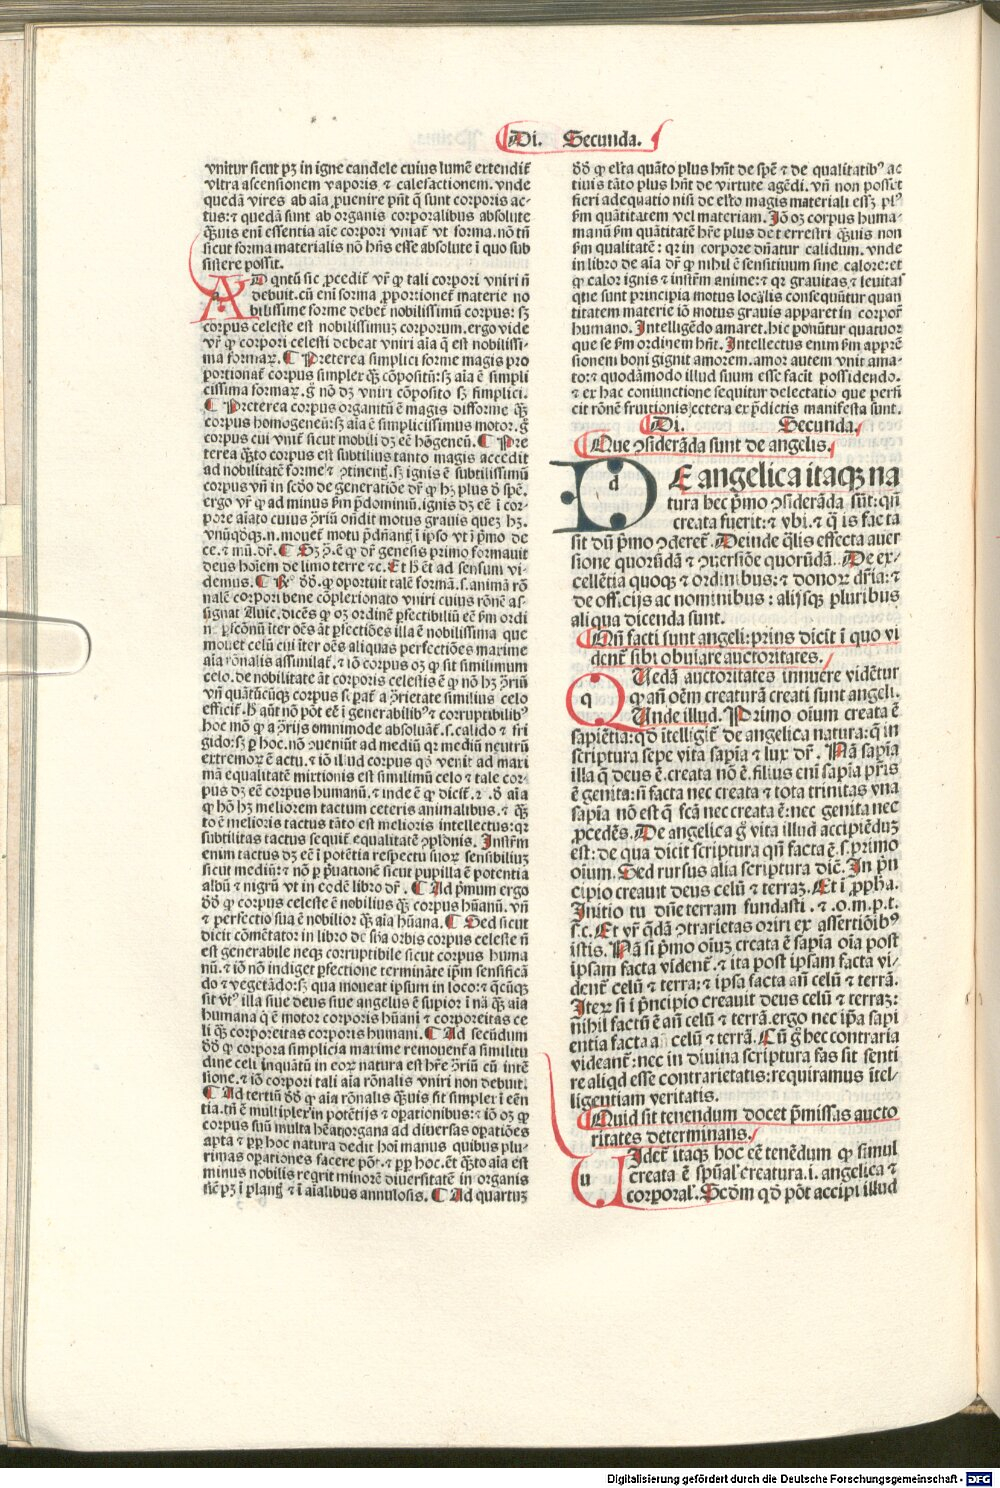 Di. Secunda.
vnitur sicut pȝ in igne candele cuius lumē extendit᷑
vltra ascensionem vaporis ⁊ calefactionem. vnde
quedā vires ab aīa ꝓuenire pn̄t q̄ sunt corporis ac-
tus: ⁊ quedā sunt ab organis corporalibus absolute
q̄uis eni essentia aīe corpori vniat᷑ vt forma. nō tn̄
sicut forma materialis nō hn̄s esse absolute ī quo sub
sistere possit.
AD qntū sic ꝓcedit᷑ vr̄ ꝙ tali corpori vniri n̄
debuit. cū eni forma ꝓportionet᷑ materie no
bilissime forme debet᷑ nobilissimū corpus: sȝ
corpus celeste est nobilissimuȝ corporum. ergo vide
vr̄ ꝙ corpori celesti debeat vniri aīa q̄ est nobilissi-
ma formaꝝ. ¶ Preterea simplici forme magis pro
portionat᷑ corpus simplex q̄ȝ cōpositū: sȝ aīa ē simpli
cissima formaꝝ. g̊ nō dȝ vniri cōposito sȝ simplici.
¶ Preterea corpus organitū ē magis difforme q̄ȝ
corpus homogeneū: sȝ aīa ē simplicissimus motor. g̊
corpus cui vnit᷑ sicut mobili dȝ eē hōgeneū. ¶ Pre
terea q̄ȝto corpus est subtilius tanto magis accedit
ad nobilitatē forme ⁊ ꝯtinent᷑. sȝ ignis ē subtilissimū
corpus vn̄ in scd̄o de generatiōe dr̄ ꝙ hȝ plus ď spē.
ergo vr̄ ꝙ ad minus ẜm p̄dominiū. ignis dȝ eē ī cor-
pore aīato cuius ꝯriū ondit motus grauis quez hȝ.
vnūqd̄qȝ. n. mouet᷑ motu p̄dn̄ant᷑ ī ipso vt ī p̄mo de
ce. ⁊ mū. dr̄. ¶ Sȝ ꝯ. ē ꝙ dr̄ genesis primo formauit
deus hoīem de limo terre ⁊c. Et h̄ ēt ad sensum vi-
demus. ¶ Rͤ. dd̄. ꝙ oportuit talē formā. s. animā rō
nalē corpori bene cōplexionato vniri cuius rōnē as-
signat Auic. dicēs ꝙ oȝ ordinē ꝑfectibiliū eē ẜm ordi
nē ꝑfectionū īter oēs āt ꝑfectiōes illa ē nobilissima que
mouet celū cui īter oēs aliquas perfectiōes maxime
aīa rōnalis assimilat᷑. ⁊ iō corpus oȝ ꝙ sit similimum
celo. de nobilitate āt corporis celestis ē ꝙ nō hȝ ꝯriū
vn̄ quātūcūqȝ corpus s. ꝑat᷑ a ꝯrietate similius celo
efficit᷑. h̄ aūt nō pōt eē ī generabilibꝰ ⁊ corruptibilibꝰ
hoc mō ꝙ a ꝯrijs omnimode absoluāt᷑. s. calido ⁊ fri
gido: sȝ ꝑ hoc. nō ꝯueniūt ad mediū qꝛ mediū neutrū
extremoꝝ ē actu. ⁊ iō illud corpus qď venit ad maxi
mā equalitatē mixtionis est similimū celo ⁊ tale cor-
pus dȝ eē corpus humanū. ⁊ inde ē ꝙ dicit᷑. 2. ď aīa
ꝙ hō hȝ meliorem tactum ceteris animalibus. ⁊ q̄ȝ
to ē melioris tactus tāto est melioris intellectus: qꝛ
subtilitas tactus sequit᷑ equalitatē ꝯplōnis. Instr̄m
enim tactus dȝ eē ī potētia respectu suoꝝ sensibiliuȝ
sicut mediū: ⁊ nō ꝑ p̄uationē sicut pupilla ē potentia
albū ⁊ nigrū vt in eodē libro dr̄. ¶ Ad p̄mum ergo
dd̄ ꝙ corpus celeste ē nobilius q̄ȝ corpus hūanū. vn̄
⁊ perfectio sua ē nobilior q̄ȝ aīa hūana. ¶ Sed sicut
dicit cōmētator in libro de sb̄a orbis corpus celeste n̄
est generabile neqȝ corruptibile sicut corpus huma
nū. ⁊ iō nō indiget ꝑfectione termināte ipm̄ sensificā
do ⁊ vegetādo: sȝ qua moueat ipsum in loco: ⁊ q̄cūqȝ
sit vtꝰ illa siue deus siue angelus ē supior ī nā q̄ȝ aīa
humana q̄ ē motor corporis hūani ⁊ corporeitas ce
li q̄ȝ corporeitas corporis humani. ¶ Ad secūdum
dd̄ ꝙ corpora simplicia maxime remouent᷑ a similitu
dine celi inquātū in eoꝝ natura est hr̄e ꝯriū cū intē
sione. ⁊ iō corpori tali aīa rōnalis vniri non debuit.
¶ Ad tertiū dd̄ ꝙ aīa rōnalis q̄uis sit simplex ī eēn
tia. tn̄ ē multiplex in potētijs ⁊ oꝑationibus: ⁊ iō oȝ ꝙ
corpus suū multa hēat organa ad diuersas oꝑatiōes
apta ⁊ ꝓp̄ hoc natura dedit hoī manus quibus plu-
rimas oꝑationes facere pōt. ⁊ ꝓp̄ hoc. ēt q̄ȝto aīa est
minus nobilis reqrit minorē diuersitatē in organis
sic pȝ ī plant᷑ ⁊ ī aīalibus annulosis. ¶ Ad quartuȝ
dd̄ ꝙ elr̄a quāto plus hn̄t de spē ⁊ de qualitatibꝰ ac
tiuis tāto plus hn̄t de virtute agēdi. vn̄ non posset
fieri adequatio nisi de elr̄to magis materiali essȝ plꝰ
ẜm quātitatem vel materiam. Iō oȝ corpus huma-
manū ẜm quātitatē hr̄e plus de terrestri q̄uis non
ẜm qualitatē: qꝛ in corpore dn̄atur calidum. vnde
in libro de aīa dr̄ ꝙ nihil ē sensitiuum sine calore: et
ꝙ calor ignis ē instr̄m anime: ⁊ qꝛ grauitas ⁊ leuitas
que sunt principia motus localis consequūtur quan
titatem materie iō motus grauis apparet in corpoꝝ
humano. Intelligēdo amaret. hic ponūtur quatuor
que se ẜm ordinem hn̄t. Intellectus enim ẜm apprē
sionem boni gignit amorem. amor autem vnit ama-
to: ⁊ quodāmodo illud suum esse facit possidendo.
⁊ ex hac coniunctione sequitur delectatio que perfi
cit rōnē fruitionis: cetera ex p̄dictis manifesta sunt.
Di. Secunda.
Que ꝯsiderāda sunt de angelis.
DE angelica itaqȝ na
tura hec p̄mo ꝯsiderāda sūt: qn̄
creata fuerit: ⁊ vbi. ⁊ q̄lis facta
sit dū p̄mo ꝯderet᷑. Deinde q̄lis effecta auer
sione quorūdā ⁊ ꝯuersiōe quorūdā. De ex-
cellētia quoqȝ ⁊ ordinibus: ⁊ donoꝝ dr̄ia: ⁊
de officijs ac nominibus: alijsqȝ pluribus
aliqua dicenda sunt.
Qn̄ facti sunt angeli: prius dicit ī quo vi
dent᷑ sibi obuiare auctoritates.
QUedā auctoritates innuere vidētur
ꝙ an̄ oēm creaturā creati sunt angeli.
Unde illud. Primo oium creata ē
sapiētia: qď ītelligit᷑ de angelica natura: q̄ in
scriptura sepe vita sapīa ⁊ lux dr̄. Nā sapīa
illa q̄ deus ē. creata nō ē. filius eni sapīa pr̄is
ē genita: n̄ facta nec creata ⁊ tota trinitas vna
sapīa nō est q̄ fcā nec creata ē: nec genita nec
ꝓcedēs. De angelica g̊ vita illud accipiēduȝ
est: de qua dicit scriptura qn̄ facta ē. s. primo
oium. Sed rursus alia scriptura dic̄. In p̄n
cipio creauit deus celū ⁊ terraȝ. Et ī ꝓpħa.
Initio tu dn̄e terram fundasti. ⁊ .o. m. p. t.
s. c. Et vr̄ q̄dā ꝯtrarietas oriri ex assertiōibꝰ
istis. Nā si p̄mo oiuȝ creata ē sapīa oīa post
ipsam facta vident᷑. ⁊ ita post ipsam facta vi-
dent᷑ celū ⁊ terra: ⁊ ipsa facta an̄ celū ⁊ terrā.
Iteꝝ si ī p̄ncipio creauit deus celū ⁊ terraȝ:
nihil factū ē an̄ celū ⁊ terrā. ergo nec ip̄a sapi
entia facta an̄ celū ⁊ terrā. Cū g̊ hec contraria
videant᷑: nec in diuina scriptura fas sit senti
re aliqd esse contrarietatis: requiramus ītel-
ligentiam veritatis.
Quid sit tenendum docet p̄missas aucto
ritates determinans.
UIdet᷑ itaqȝ hoc eē tenēdum ꝙ simul
creata ē spūal' creatura. i. angelica ⁊
corporal'. Scd̄m qď pōt accipi illud
Digitalisierung gefördert durch die Deutsche Forschungsgemeinschaft - DFG